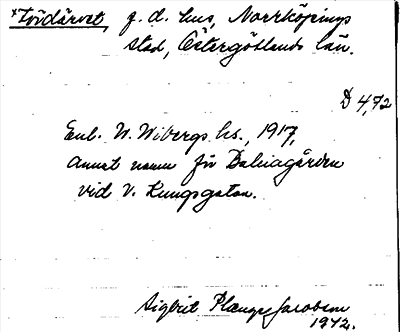 *Tvidärvet, g. d. hus, Norrköpings
stad, Östergötlands län.
D 4,72
Enl. W. Wibergs hs., 1917,
annat namn för Dalviagården
vid V. Kungsgatan.
Sigbrit Plange Jacobson
1972.